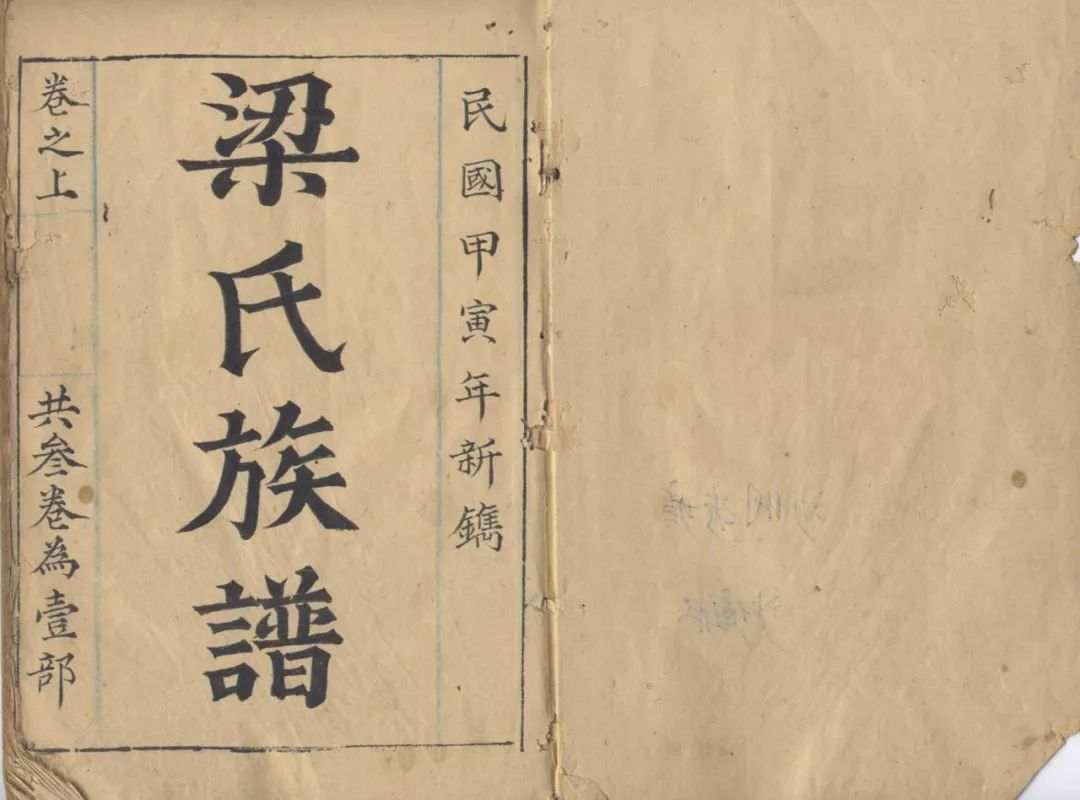 民國甲寅年新鐫
梁氏族譜
卷之上
共叄卷為壹部